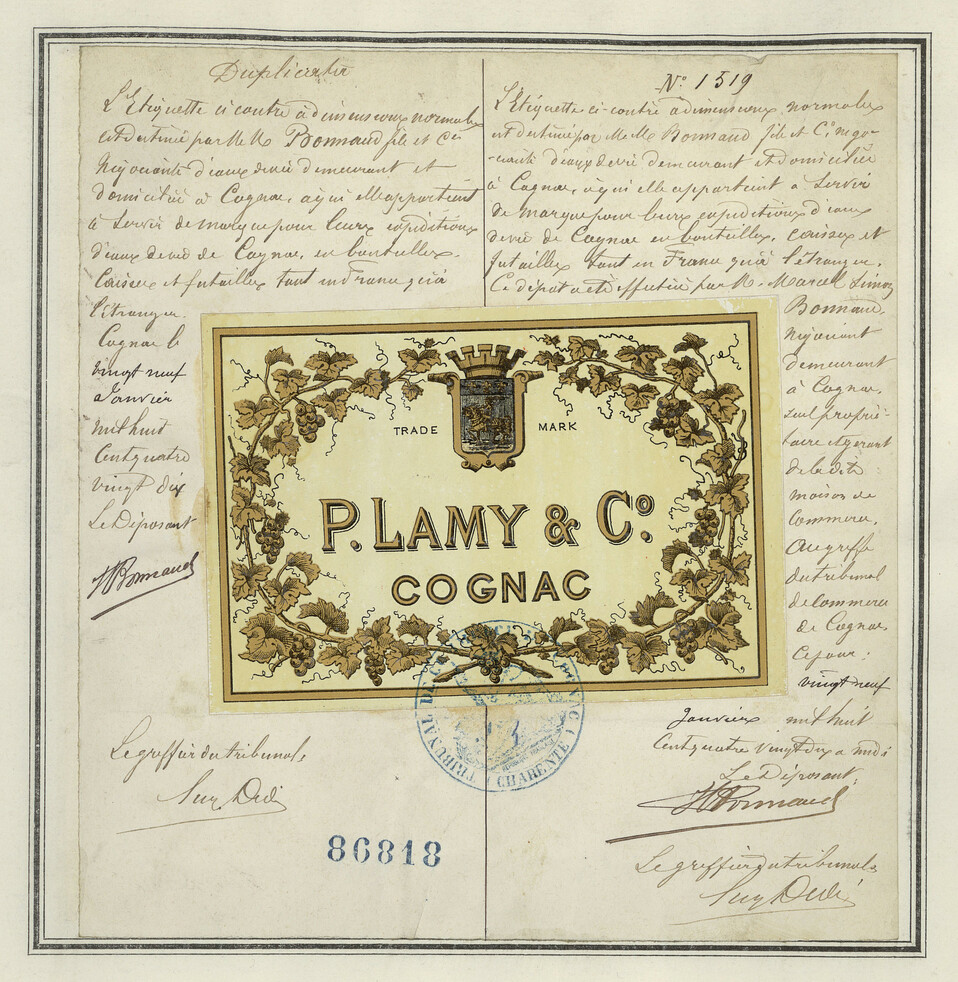 Duplicata
L'Etiquette ci contre à dimensions normales
est destinée par M.M. Bonnaud fils et Cie
Négociants d'eaux devie demeurant et
domiciliés à Cognac, à qui elle appartient
à Servir de marque pour leurs expéditions
d'eaux de vie de Cognac, en bouteilles,
Caisses et futailles tant en France qu'à
l'étranger.
Cognac le
vingt neuf
Janvier
mil huit
Cent quatre
vingt dix
Le Déposant
Bonnaud
Le greffier du tribunal
N° 1519
L'Etiquette ci-contre à dimensions normales
est destinée par M.M. Bonnaud fils et Cie négo-
-ciants d'eaux devie demeurant et domiciliés
à Cognac, à qui elle appartient à Servir
de marque pour leurs expéditions d'eaux
devie de Cognac en bouteilles, caisses et
futailles tant en France qu'à l'étranger.
Ce dépôt a été effectué par M. Marcell Simon
Bonnaud,
Négociant
demeurant
à Cognac,
seul proprié-
taire et gérant
de la dite
maison de
Commerce,
au greffe
du tribunal
de Commerce
de Cognac
Ce jour:
vingt neuf
Janvier mil huit
Cent quatre vingt dix à midi
Le Déposant:
Bonnaud
Le greffier du tribunal
TRADE MARK
P. LAMY & Co.
COGNAC
TRIBUNAL DE COGNAC (CHARENTE)
86818